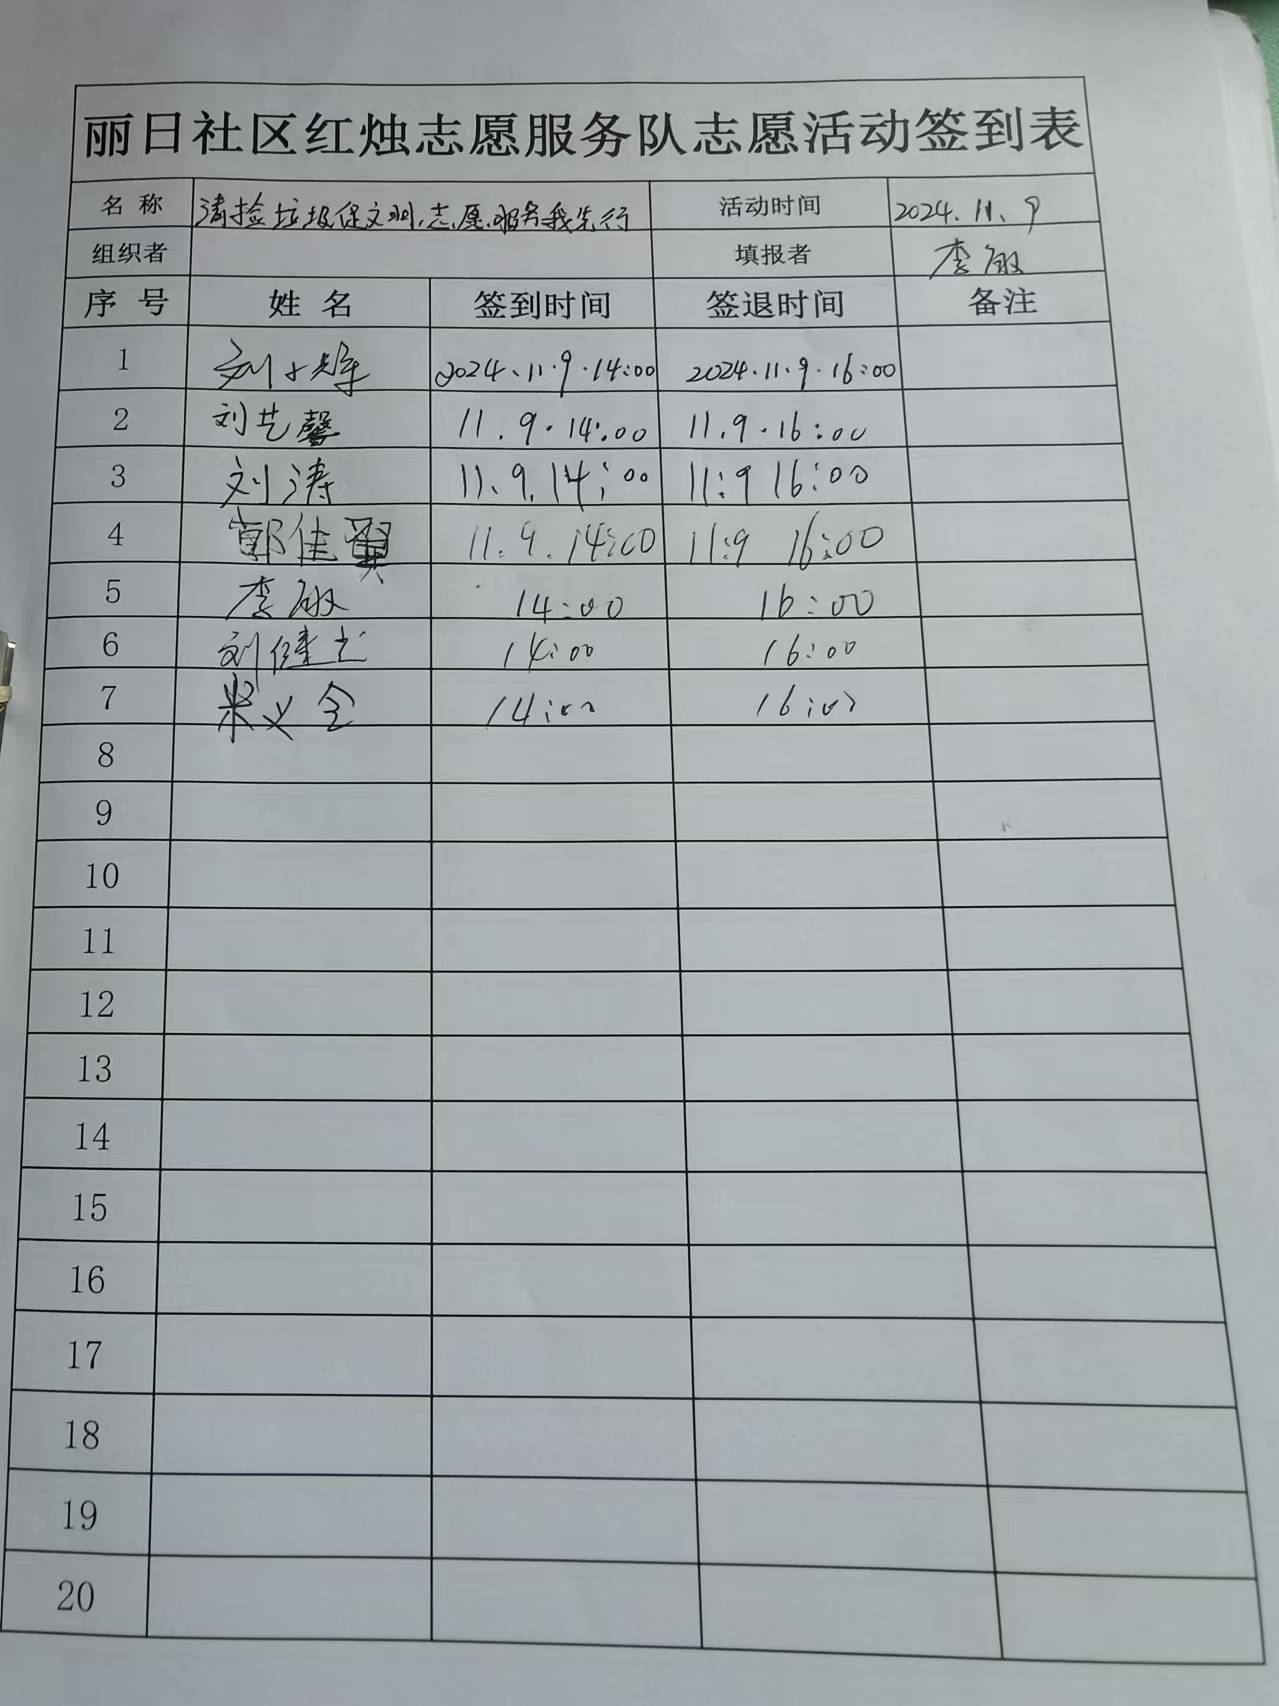 丽日社区红烛志愿服务队志愿活动签到表
名 称 清捡垃圾促文明,志愿服务我先行 活动时间 2024.11.9
组织者 填报者 李敏
序 号 姓 名 签到时间 签退时间 备注
1 2024.11.9.14:00 2024.11.9.16:00
2 刘艺馨 11.9.14:00 11.9.16:00
3 刘涛 11.9.14:00 11:9 16:00
4 郭佳翼 11.9.14:00 11:9 16:00
5 李敏 14:00 16:00
6 刘健 14:00 16:00
7 14:00 16:00
8
9
10
11
12
13
14
15
16
17
18
19
20